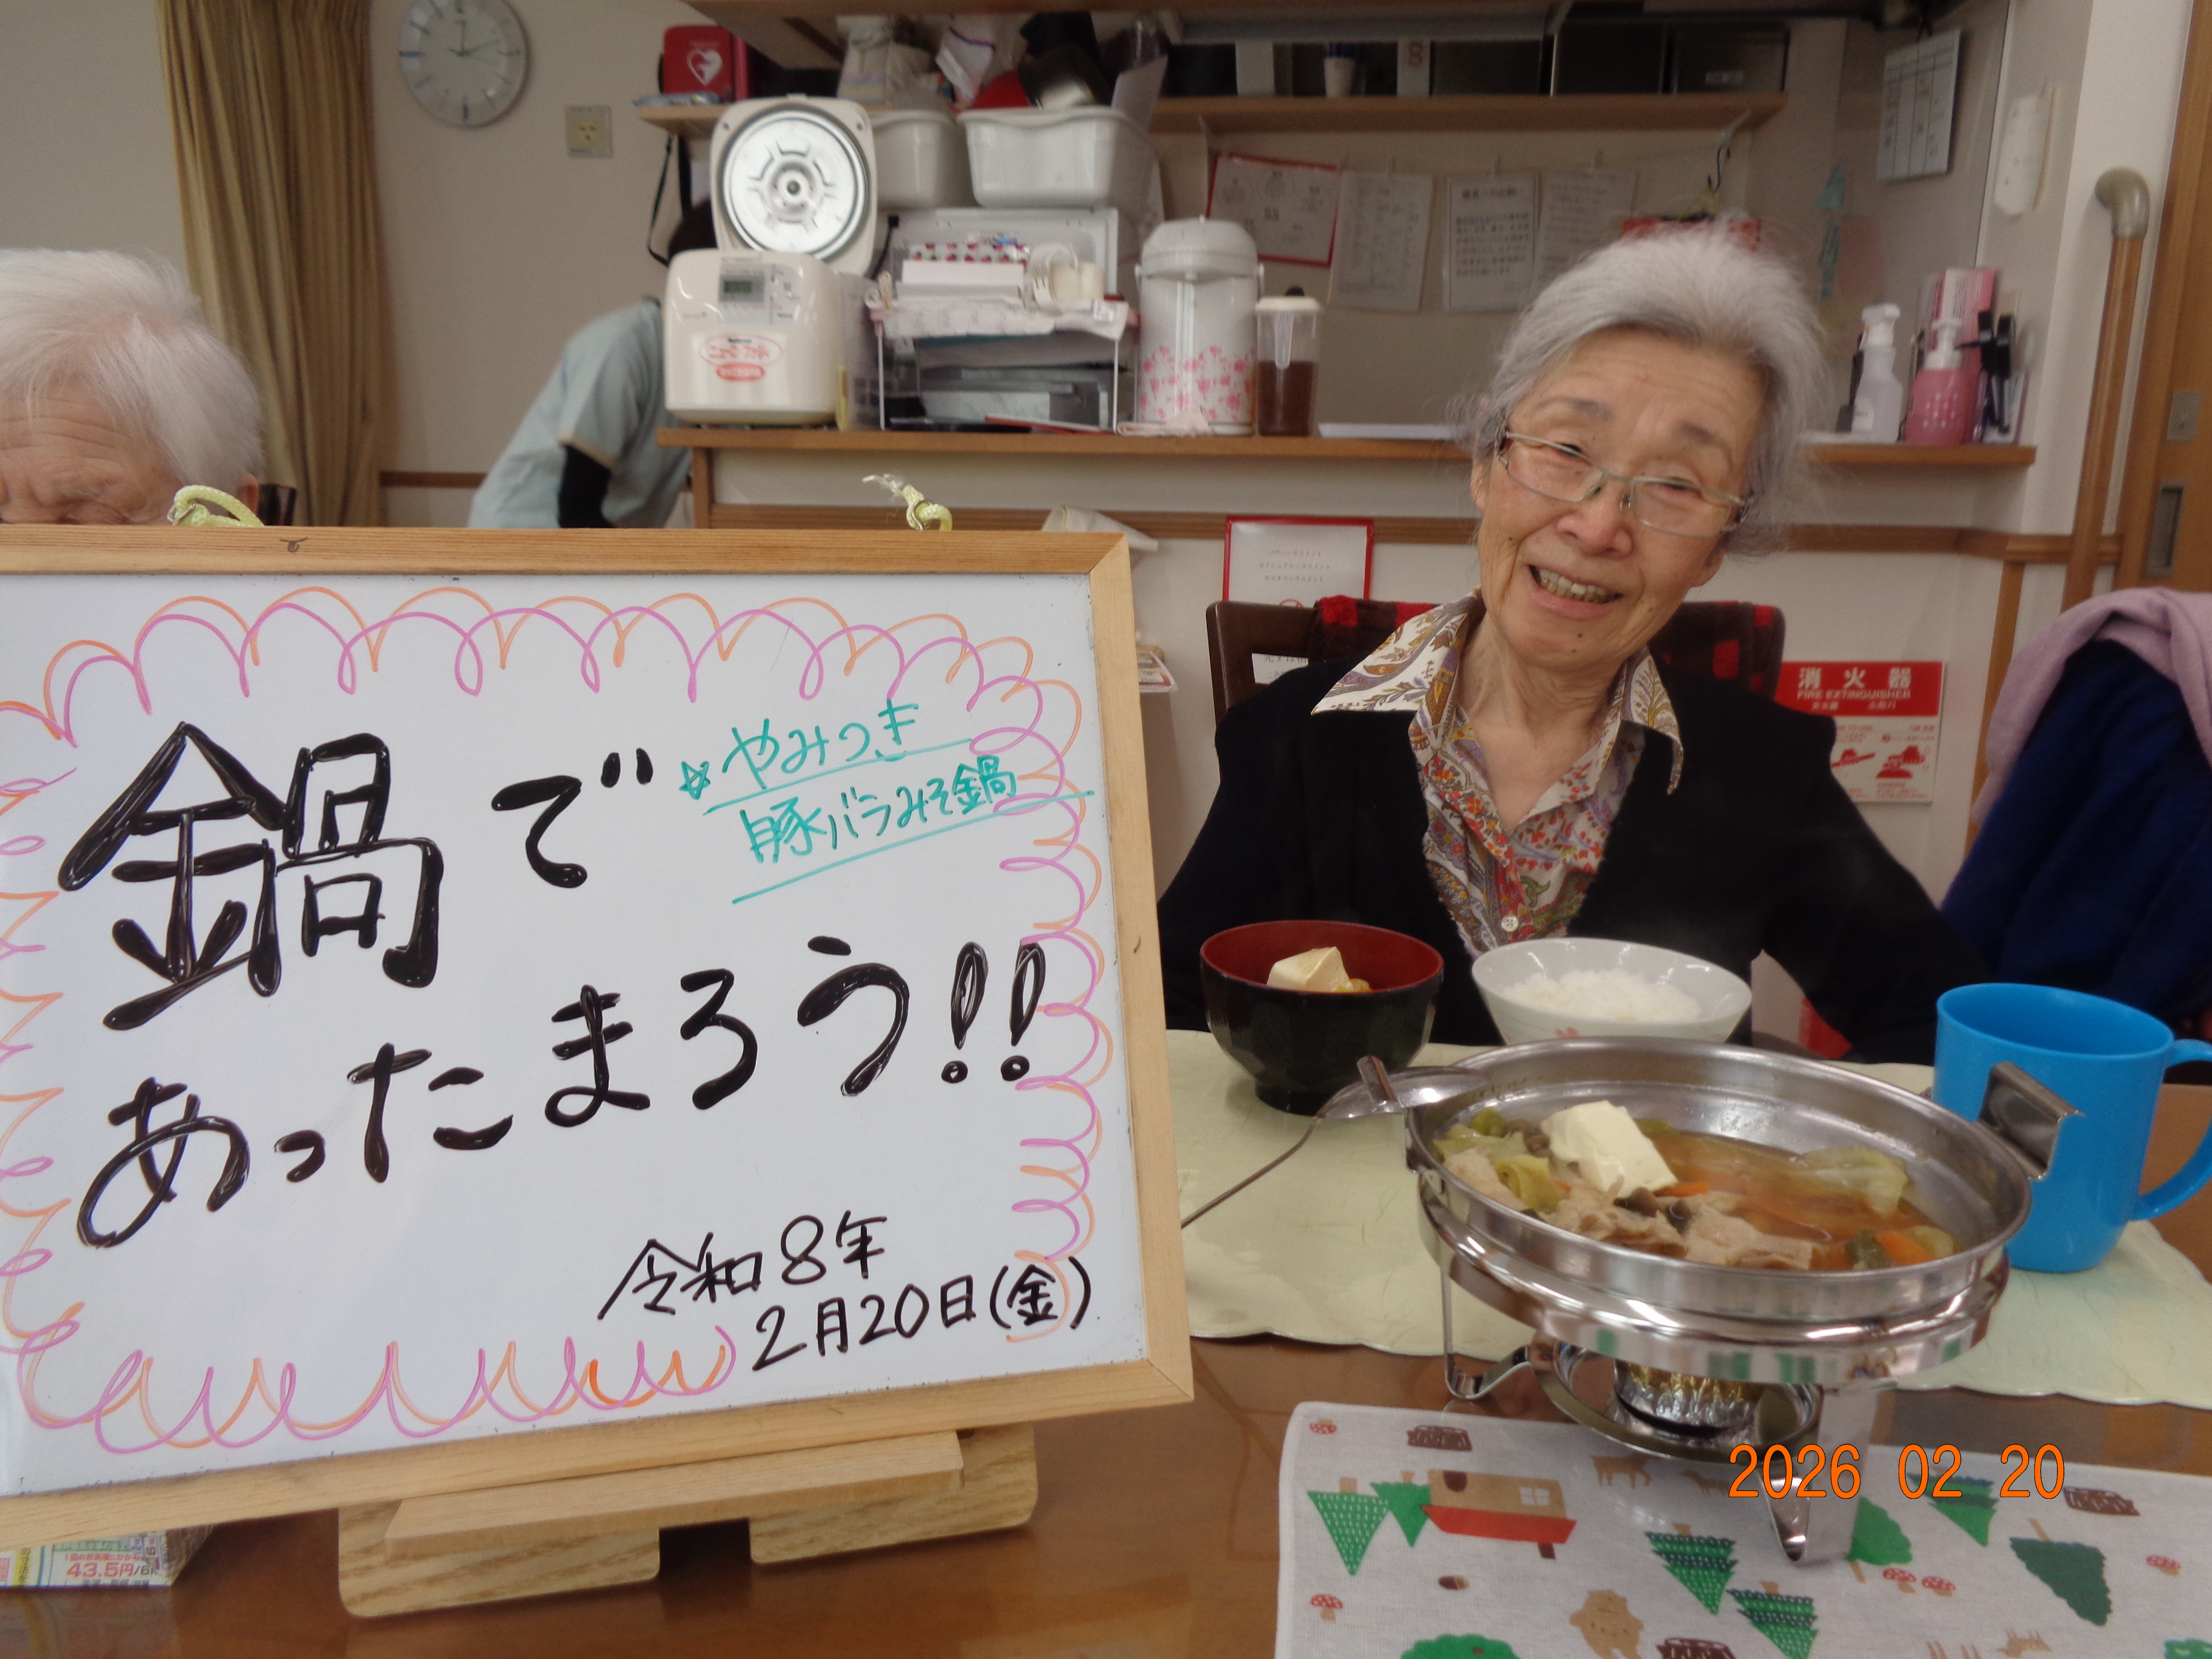 鍋で
☆やみつき
豚バラみそ鍋
あったまろう!!
令和8年
2月20日(金)
消火器
FIRE EXTINGUISHER
43.5円
2026 02 20